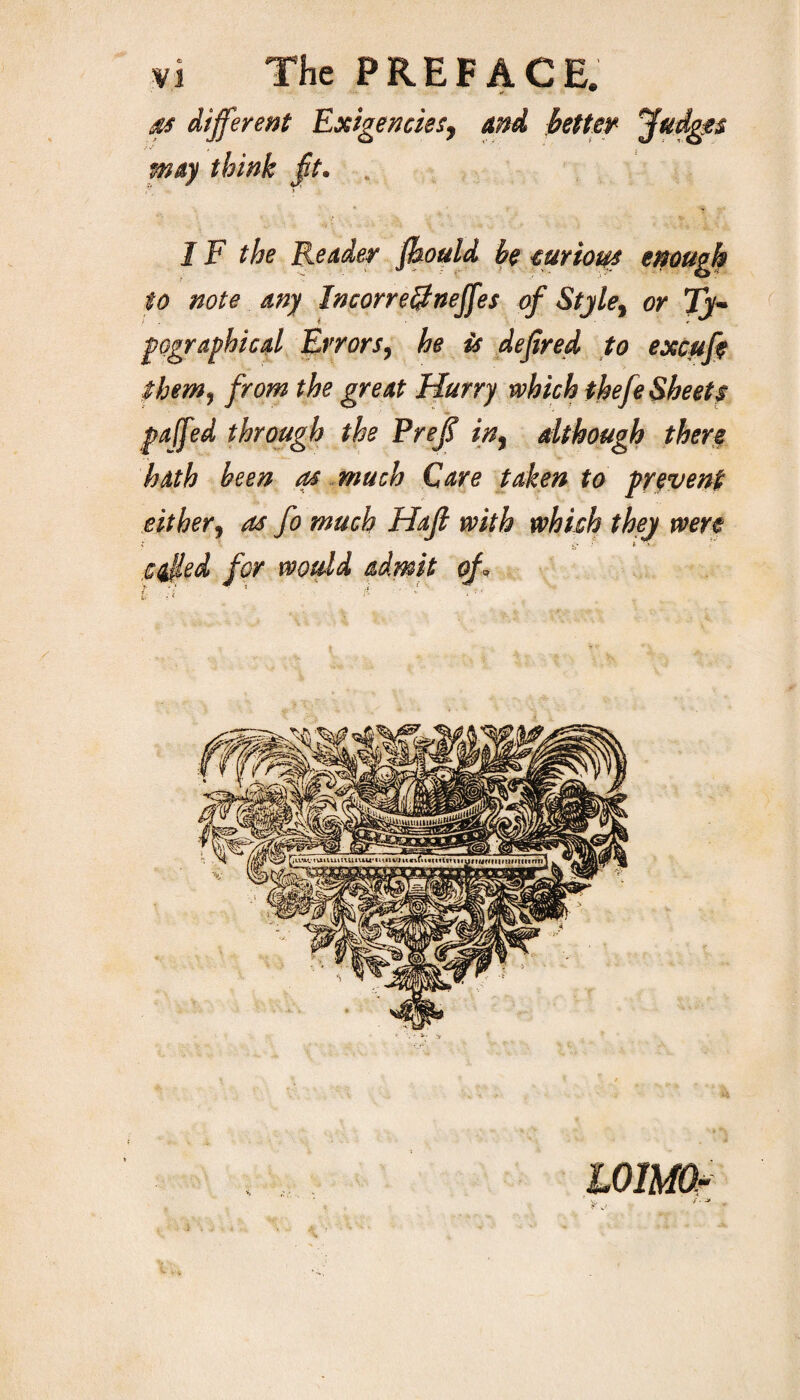 vi The PREFACE.
as different Exigencies, and better Judges
may think fit.
IF the Reader ſhould be curious enough
to note any Incorrectneſſes of Style, or Ty-
pographical Errors, he is deſired to excuſe
them, from the great Hurry which theſe Sheets
paſſed through the Preſs in, although there
hath been as much Care taken to prevent
either, as ſo much Haſt with which they were
called for would admit of.
LOIMO-